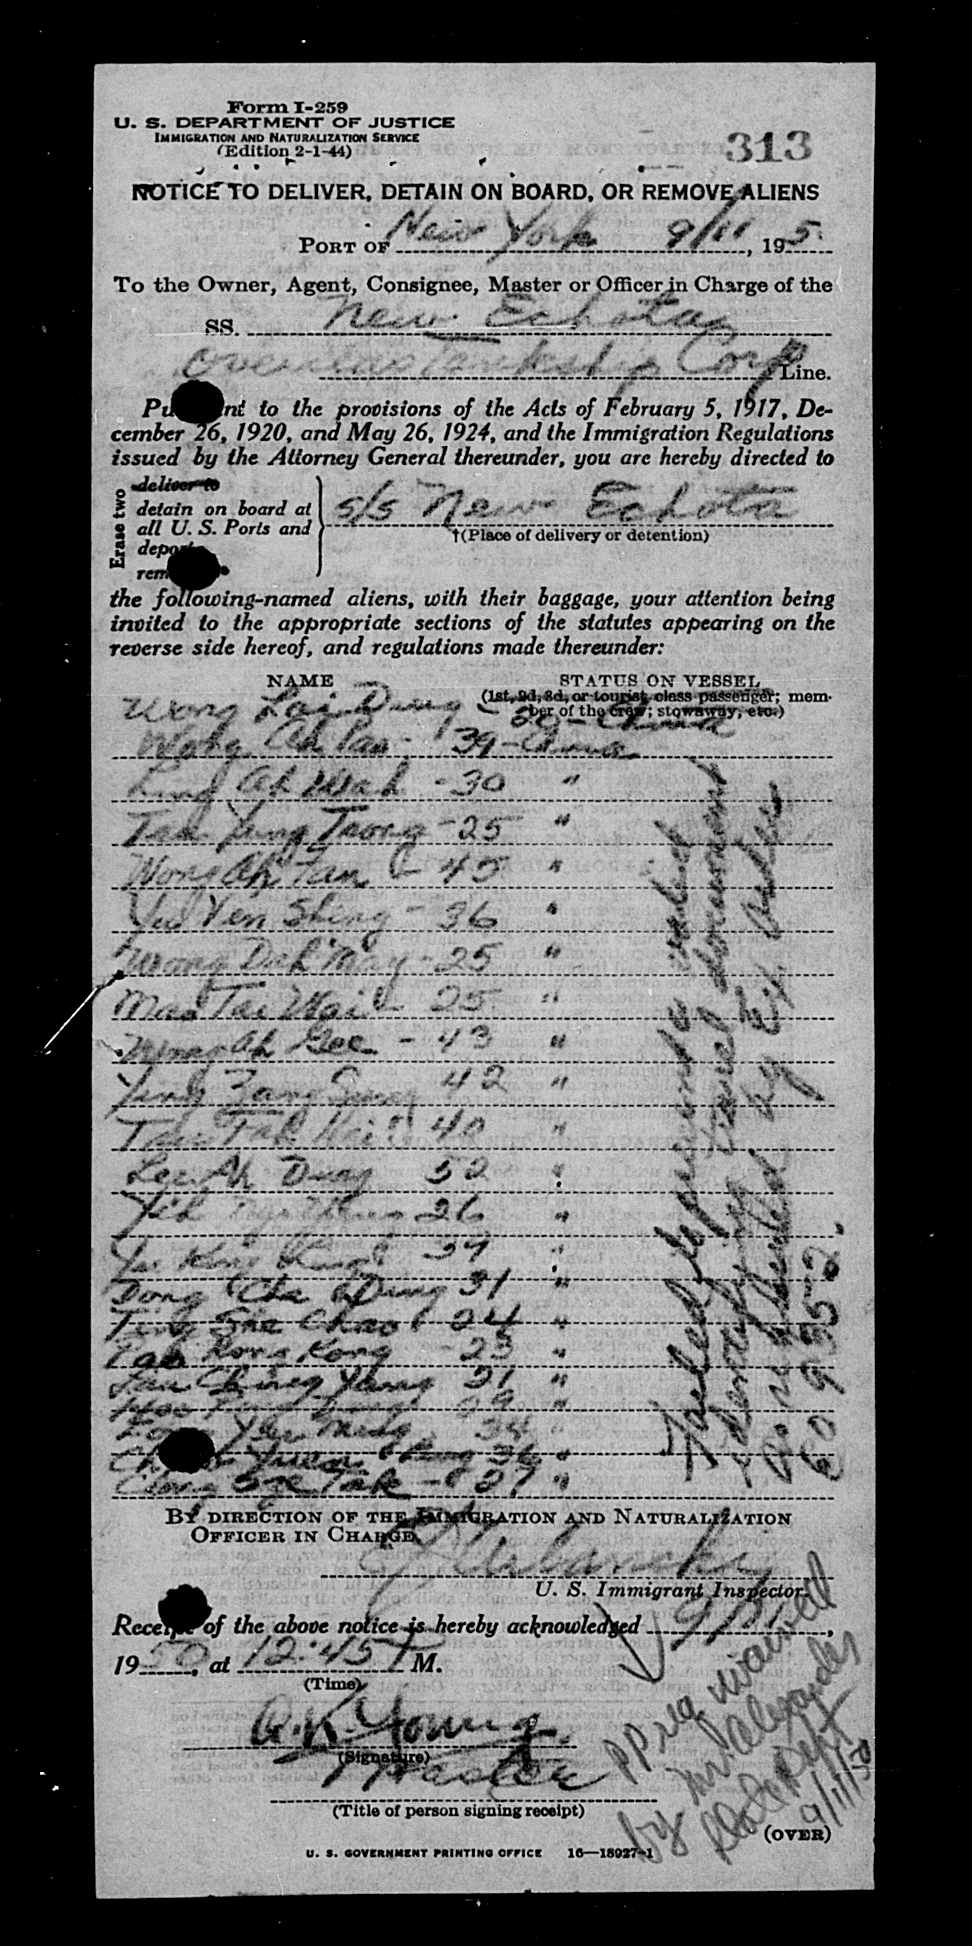 Form I-259
U. S. DEPARTMENT OF JUSTICE
IMMIGRATION AND NATURALIZATION SERVICE
(Edition 2-1-44)
313
NOTICE TO DELIVER, DETAIN ON BOARD, OR REMOVE ALIENS
PORT OF New York 9/11, 195
To the Owner, Agent, Consignee, Master or Officer in Charge of the
SS. New Echota
Overseas Tankship Corp Line.
Pu nt to the provisions of the Acts of February 5, 1917, De-
cember 26, 1920, and May 26, 1924, and the Immigration Regulations
issued by the Attorney General thereunder, you are hereby directed to
Erase two
deliver to
detain on board at
all U. S. Ports and
depo
rem
s/s New Echota
†(Place of delivery or detention)
the following-named aliens, with their baggage, your attention being
invited to the appropriate sections of the statutes appearing on the
reverse side hereof, and regulations made thereunder:
NAME STATUS ON VESSEL
(1st, 2d, 3d, or tourist class passenger; mem-
ber of the crew; stowaway, etc.)
Wong Lai Dung - China
Wong Ah - 39 - China
Ling Ah Wah - 30 "
Yung Tsong - 25 "
Wong Ah Tan - 45 "
Yui Yen Shing - 36 "
Wong Dah May - 25 "
Mao Tai Wai - 25 "
Wong Ah Gee - 43 "
Ying Zang Sung 42 "
Tak Hai 40 "
Lee Ah Dung 52 "
Yih 26 "
King "
Dong Cha Ding 31 "
Ting Sne Chao 24 "
Kong Kong - 23 "
Lau Ching Yang 21 "
Yew Ming 34 "
Yuen 36 "
Tak - 27 "
Failed to present a valid
identifying travel document
as required by Ex Order
EO 9352.
BY DIRECTION OF THE IMMIGRATION AND NATURALIZATION
OFFICER IN CHARGE
Urbanski
U. S. Immigrant Inspector.
Receipt of the above notice is hereby acknowledged 9/11,
1950, at 12:45 P M.
(Time)
A. K. Young
(Signature)
Master
(Title of person signing receipt)
PP req waived
by Mr Alexander
State Dept
9/11/50
(OVER)
U. S. GOVERNMENT PRINTING OFFICE 16—18927-1